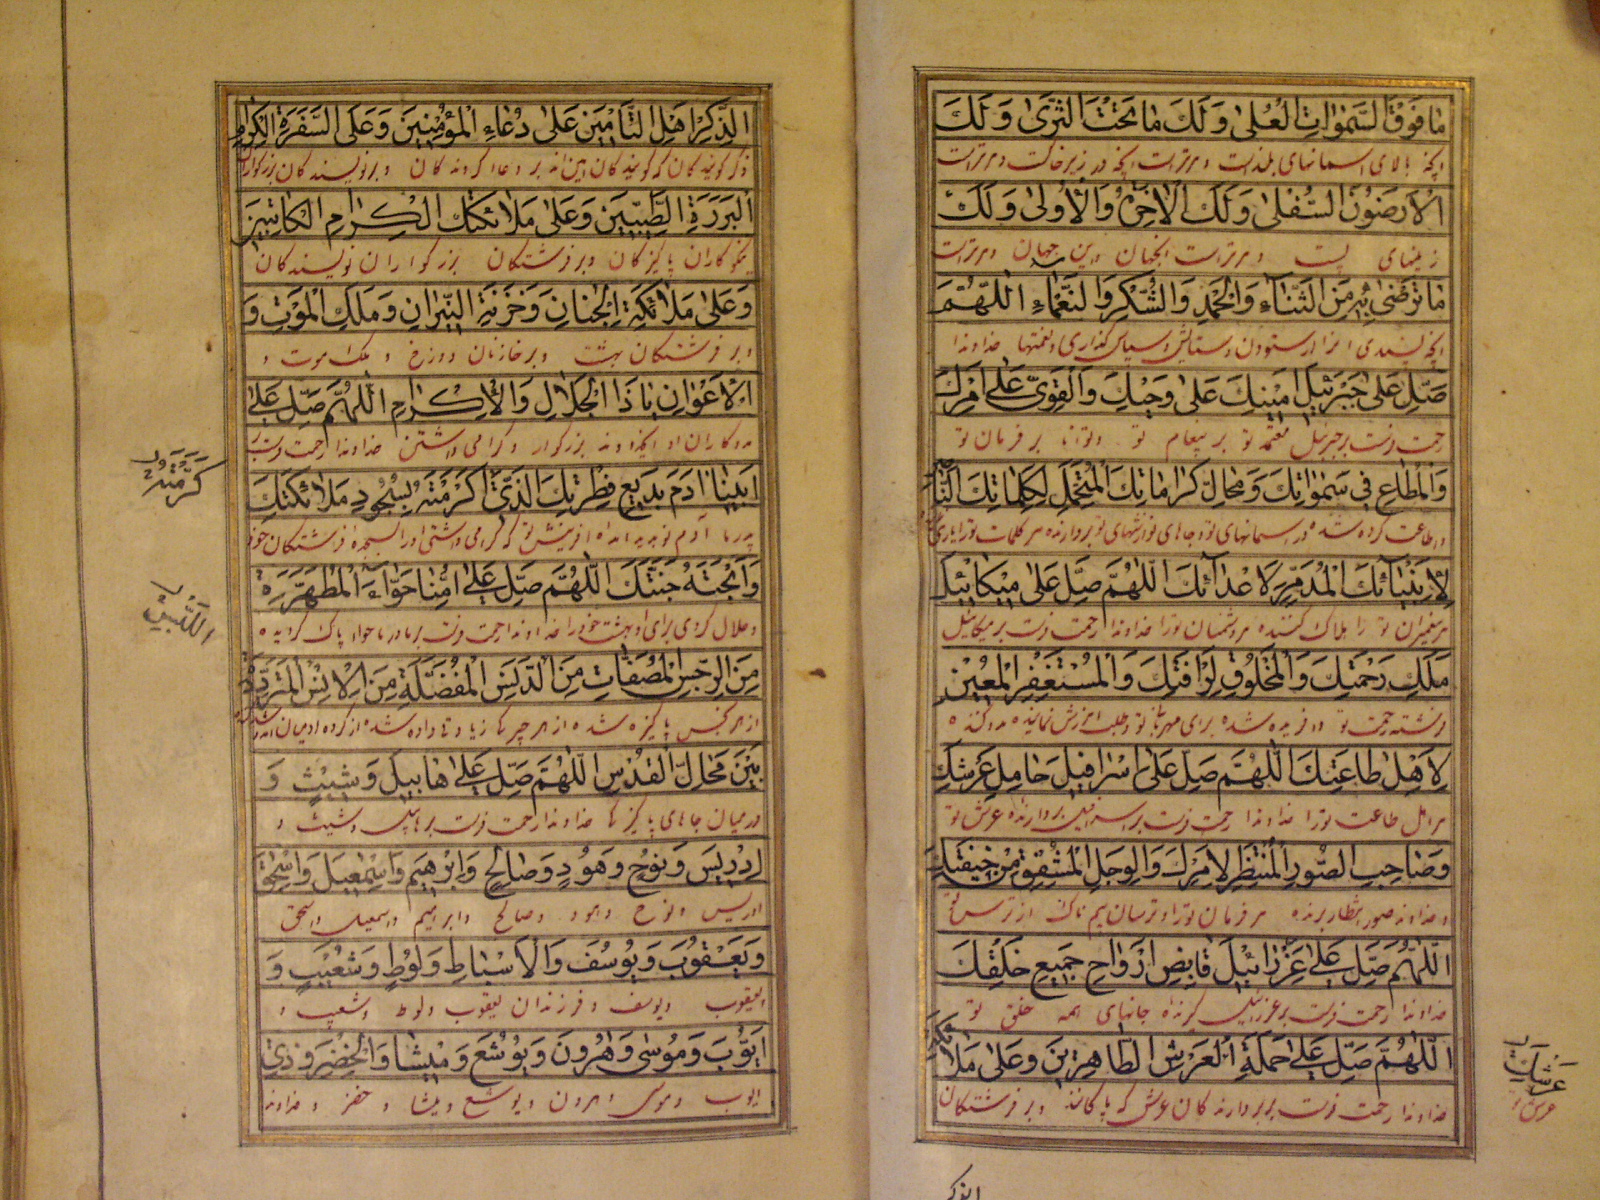 ما فَوْقَ السَّمٰواتِ الْعُلىٰ وَ لَكَ ما تَحْتَ الثَّرىٰ وَ لَكَ
آنچه بالای آسمانهای بلندست و مرتراست آنچه در زیر خاکست و مرتراست
الْاَرَضُونَ السُّفْلىٰ وَ لَكَ الْاٰخِرَةُ وَالْاُولىٰ وَ لَكَ
زمینهای پست و مرتراست آنجهان و این جهان و مرتراست
ما تَرْضىٰ بِهِ مِنَ الثَّنٰاءِ وَالْحَمْدِ وَالشُّكْرِ وَ النَّعْماءِ اَللّٰهُمَّ
آنچه پسندی از ستودن و ستایش و سپاس گذاری و نعمتها خداوندا
صَلِّ عَلىٰ جَبْرَئيلَ اَمينِكَ عَلىٰ وَحْيِكَ وَالْقَوِيِّ عَلىٰ اَمْرِكَ
رحمت فرست بر جبرئیل معتمد تو بر پیغام تو و توانا بر فرمان تو
وَالْمُطاعِ فى سَمٰواتِكَ وَ مَحالِّ كَراماتِكَ الْمُتَحَمِّلِ لِكَلِماتِكَ النّاصِرِ
و اطاعت کرده شده در آسمانهای تو و جاهای نوازشهای تو بردارنده مر کلمات تو را یاری
لِاَنْبِيائِكَ الْمُدَمِّرِ لِاَعْدائِكَ اَللّٰهُمَّ صَلِّ عَلىٰ ميكائيلَ
مر پیغمبران تو را هلاک کننده مر دشمنان تو را خداوندا رحمت فرست بر میکائیل
مَلَكِ رَحْمَتِكَ وَالْمَخْلُوقِ لِرَأْفَتِكَ وَالْمُسْتَغْفِرِ الْمُعينِ
فرشته رحمت تو و آفریده شده برای مهربانی تو و طلب آمرزش نماینده مدد کننده
لِاَهْلِ طاعَتِكَ اَللّٰهُمَّ صَلِّ عَلىٰ اِسْرافيلَ حامِلِ عَرْشِكَ
مر اهل طاعت تو را خداوندا رحمت فرست بر اسرافیل بردارنده عرش تو
وَ صاحِبِ الصُّورِ الْمُنْتَظِرِ لِاَمْرِكَ وَالْوَجِلِ الْمُشْفِقِ مِنْ خيفَتِكَ
و خداوند صور انتظار برنده مر فرمان تو را و ترسان بیم ناک از ترس تو
اَللّٰهُمَّ صَلِّ عَلىٰ عَزْرائيلَ قابِضِ اَرْواحِ جَميعِ خَلْقِكَ
خداوندا رحمت فرست بر عزرائیل گیرنده جانهای همه خلق تو
اَللّٰهُمَّ صَلِّ عَلىٰ حَمَلَةِ الْعَرْشِ الطّاهِرينَ وَ عَلىٰ مَلائِكَةِ
خداوندا رحمت فرست بر بردارندکان عرش که پاکانند و بر فرشتکان
عَرْشِكَ
عرش
الذِّكْرِ اَهْلِ التَّأْمينِ عَلىٰ دُعاءِ الْمُؤْمِنينَ وَ عَلَى السَّفَرَةِ الْكِرامِ
ذکر کویندکان که کویندکان آمین‌اند بر دعا کرونده کان و بر نویسندکان بزرکواران
الْبَرَرَةِ الطَّيِّبينَ وَ عَلىٰ مَلائِكَتِكَ الْكِرامِ الْكاتِبينَ
نیکوکاران پاکیزکان و بر فرشتکان بزرکواران نویسندکان
وَ عَلىٰ مَلائِكَةِ الْجِنانِ وَ خَزَنَةِ النّيرانِ وَ مَلَكِ الْمَوْتِ وَ
و بر فرشتکان بهشت و بر خازنان دوزخ و ملک موت و
الْاَعْوانِ يا ذَا الْجَلالِ وَالْاِكْرامِ اَللّٰهُمَّ صَلِّ عَلىٰ
مددکاران او ایخداوند بزرکوار و کرامی داشتن خداوندا رحمت فرست بر
اَبينا اٰدَمَ بَديعِ فِطْرَتِكَ الَّذى اَكْرَمْتَهُ بِسُجُودِ مَلائِكَتِكَ
پدر ما آدم نو پدید آمده آفرینش تو که کرامی داشتی او را بسجده فرشتکان خود
كَرَّمْتَهُ
وَ اَبَحْتَهُ جَنَّتَكَ اَللّٰهُمَّ صَلِّ عَلىٰ اُمِّنا حَوّاءَ الْمُطَهَّرَةِ
و حلال کردی برای او بهشت خود را خداوندا رحمت فرست بر مادر ما حواء پاک کردیده
مِنَ الرِّجْسِ الْمُصَفّاتِ مِنَ الدَّنَسِ الْمُفَضَّلَةِ مِنَ الْاِنْسِ الْمُتَرَدِّدَةِ
بَيْنَ مَحالِّ الْقُدْسِ اَللّٰهُمَّ صَلِّ عَلىٰ هابيلَ وَ شَيْثٍ وَ
در میان جاهای پاکیزکی خداوندا رحمت فرست بر هابیل و شیث و
اِدْريسَ وَ نُوحٍ وَ هُودٍ وَ صالِحٍ وَ اِبْرٰهيمَ وَ اِسْمٰعيلَ وَ اِسْحٰقَ
ادریس و نوح و هود و صالح و ابراهیم و اسمعیل و اسحق
وَ يَعْقُوبَ وَ يُوسُفَ وَالْاَسْباطِ وَ لُوطٍ وَ شُعَيْبٍ وَ
و یعقوب و یوسف و فرزندان یعقوب و لوط و شعیب و
اَيُّوبَ وَ مُوسىٰ وَ هٰرُونَ وَ يُوشَعَ وَ ميشا وَالْخِضْرِ وَ ذِى
ایوب و موسی و هرون و یوشع و میشا و خضر و خداوند